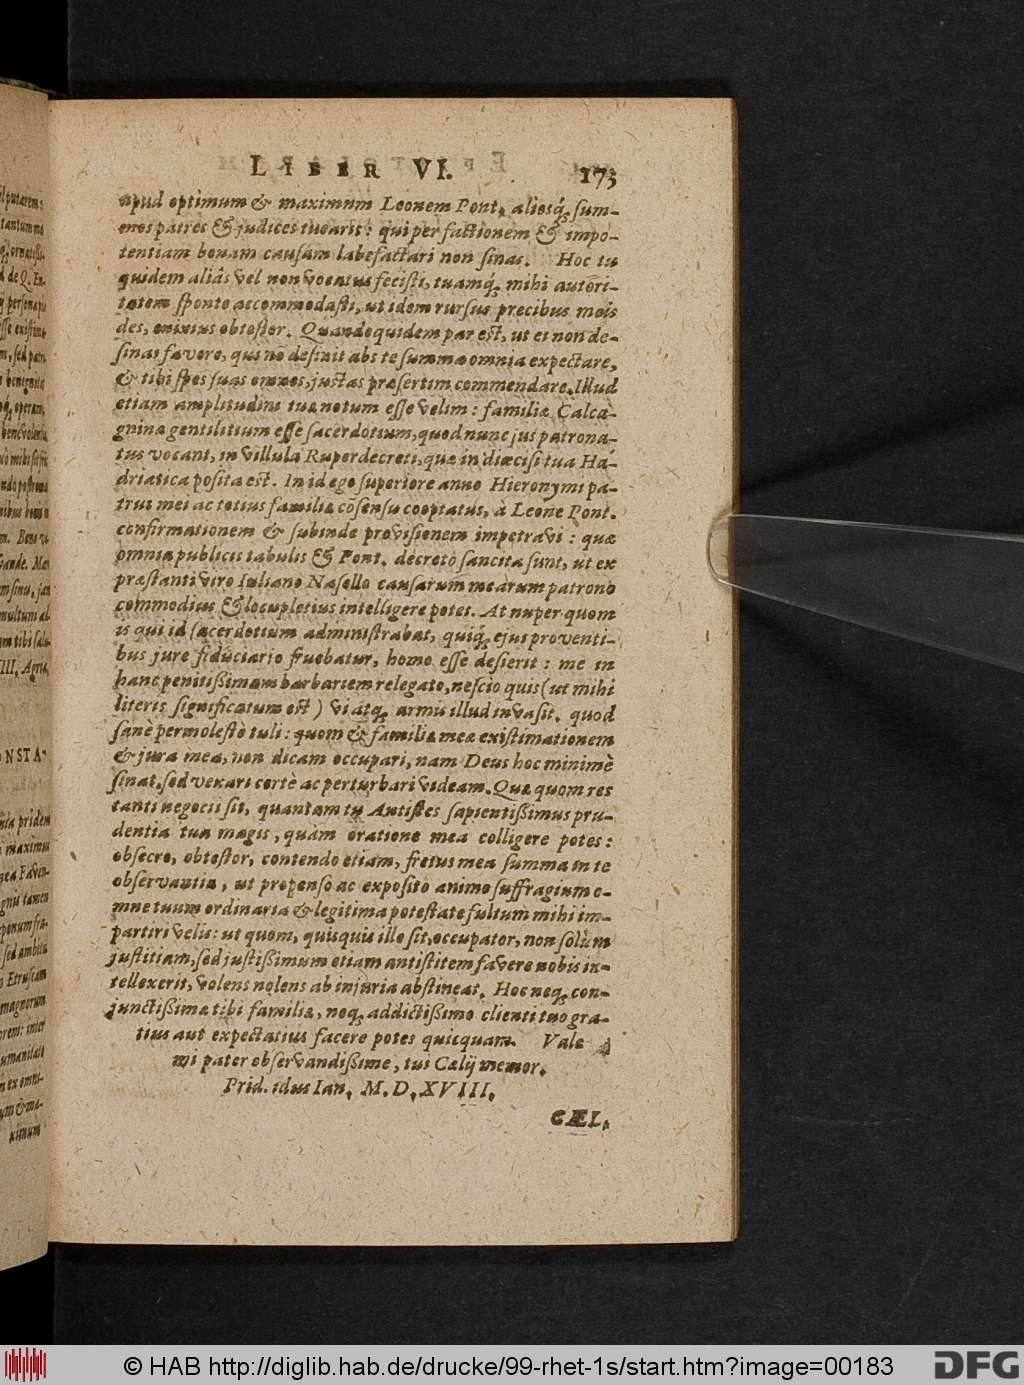 LIBER VI. 173
apud optimum & maximum Leonem Pont. aliosq́; sum-
mos patres & judices tuearis: qui per factionem & impo-
tentiam bonam causam labefactari non sinas. Hoc tu
quidem aliâs vel non vocatus fecisti, tuamq́; mihi autori-
tatem sponte accommodasti, ut idem rursus precibus meis
des, enixius obtestor. Quandoquidem par est, ut ei non de-
sinas favere, qui nō desinit abs te summa omnia expectare,
& tibi spes suas omnes, justas præsertim commendare. Illud
etiam amplitudini tuæ notum esse velim: familiæ Calca-
gninæ gentilitium esse sacerdotium, quod nunc jus patrona-
tus vocant, in villula Ruperdecreti, quæ in diœcisi tua Ha-
driatica posita est. In id ego superiore anno Hieronymi pa-
trui mei ac totius familiæ cōsensu cooptatus, à Leone Pont.
confirmationem & subinde provisionem impetravi: quæ
omnia publicis tabulis & Pont. decreto sancita sunt, ut ex
præstanti viro Iuliano Nasello causarum mearum patrono
commodius & locupletius intelligere potes. At nuper quom
is qui id sacerdotium administrabat, quiq́; ejus proventi-
bus jure fiduciario fruebatur, homo esse desierit: me in
hanc penitissimam barbariem relegato, nescio quis (ut mihi
literis significatum est) vi atq; armis illud invasit. quod
sanè permolestè tuli: quom & familiæ meæ existimationem
& jura mea, non dicam occupari, nam Deus hoc minimè
sinat, sed vexari certè ac perturbari videam. Quæ quom res
tanti negocii sit, quantam tu Antistes sapientissimus pru-
dentia tua magis, quàm oratione mea colligere potes:
obsecro, obtestor, contendo etiam, fretus mea summa in te
observantia, ut propenso ac exposito animo suffragium o-
mne tuum ordinaria & legitima potestate fultum mihi im-
partiri velis: ut quom, quisquis ille sit, occupator, non solùm
justitiam, sed justissimum etiam antistitem favere nobis in-
tellexerit, volens nolens ab injuria abstineat. Hoc neq; con-
junctissimæ tibi familiæ, neq; addictissimo clienti tuo gra-
tius aut expectatius facere potes quicquam. Vale
mi pater observandissime, tui Calij memor.
Prid. idus Ian. M. D. XVIII.
CÆL.
© HAB http://diglib.hab.de/drucke/99-rhet-1s/start.htm?image=00183
DFG